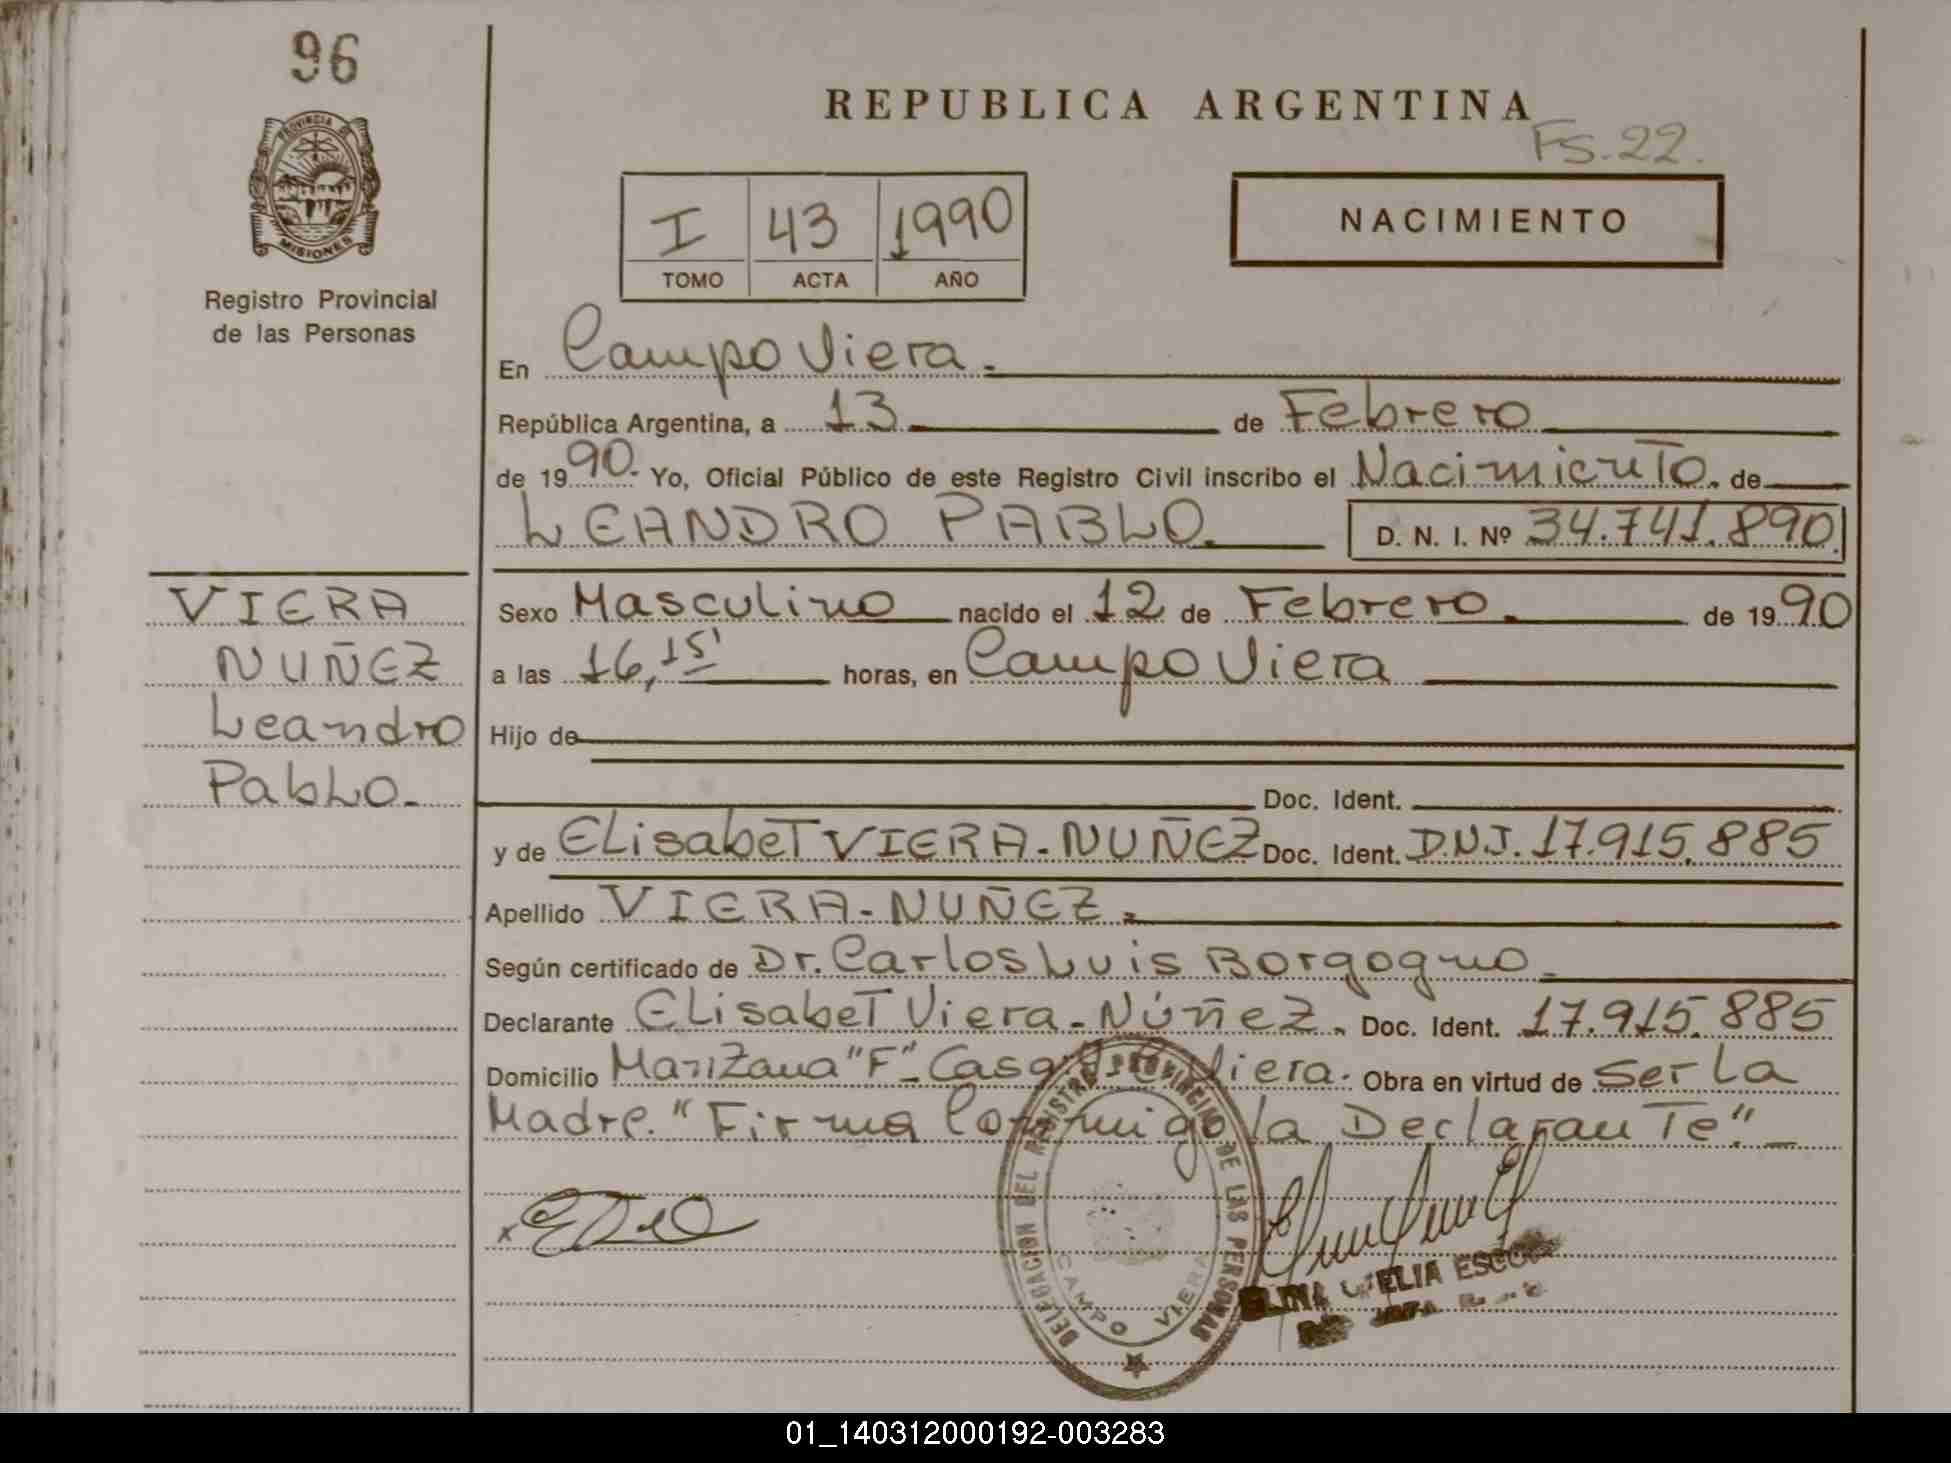 96
PROVINCIA DE
MISIONES
Registro Provincial
de las Personas
REPUBLICA ARGENTINA
FS.22.
I 43 1990
TOMO ACTA AÑO
NACIMIENTO
En Campo Viera.
República Argentina, a 13 de Febrero
de 1990. Yo, Oficial Público de este Registro Civil inscribo el Nacimiento. de
LEANDRO PABLO. D. N. I. Nº 34.741.890.
VIERA
NUÑEZ
Leandro
Pablo.
Sexo Masculino nacido el 12 de Febrero. de 1990
a las 16,15' horas, en Campo Viera
Hijo de
Doc. Ident.
y de Elisabet VIERA-NUÑEZ Doc. Ident. D.N.I. 17.915.885
Apellido VIERA-NUÑEZ.
Según certificado de Dr. Carlos Luis Borgogno.
Declarante Elisabet Viera-Núñez. Doc. Ident. 17.915.885
Domicilio Manzana "F"- Casa Viera. Obra en virtud de ser la
Madre. "Firma Conmigo la Declarante".
x
DELEGACION DEL REGISTRO PROVINCIAL DE LAS PERSONAS
CAMPO VIERA
01_140312000192-003283